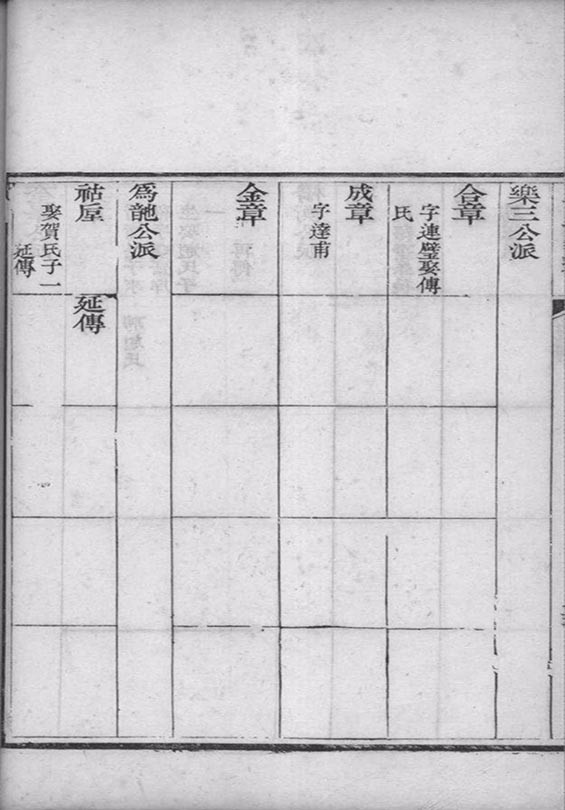 樂三公派
合章
字連璧娶傅
氏
成章
字達甫
金章
為龍公派
祜垕
娶賀氏子一
延傳
延傳